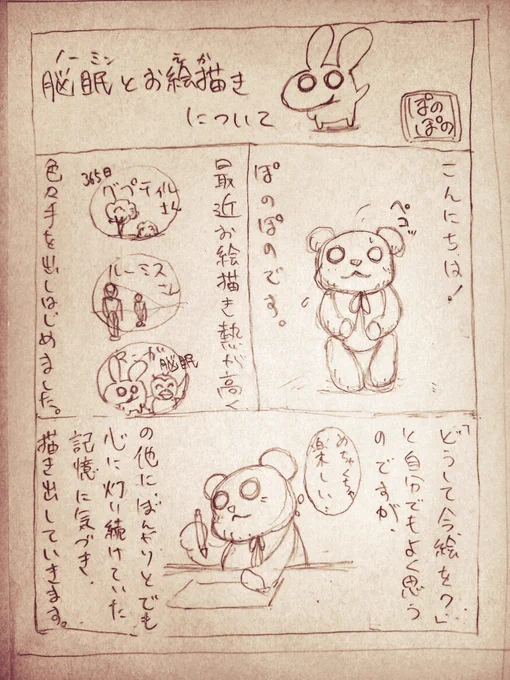 脳眠とお絵描き
ノーミン
えか
について
ぽのぽの
こんにちは!
ペコッ
ぽのぽのです。
最近お絵描き熱が高く
365日
グプティルさん
ルーミスさん
マンガ脳眠
色々手を出しはじめました。
「どうして今絵を?」
と自分でもよく思う
のですが、
めちゃくちゃ
楽しい!
の他にぼんやりとでも
心に灯り続けていた
記憶に気づき、
描き出していきます。